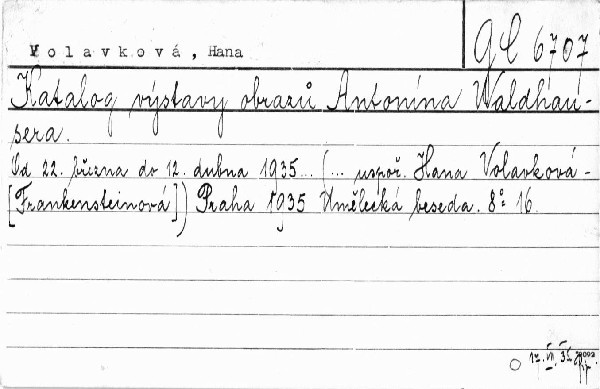 Volavková, Hana
GC 6707
Katalog výstavy obrazů Antonína Waldhau-
sera.
Od 22. března do 12. dubna 1935... (... uspoř. Hana Volavková-
[Frankensteinová]) Praha 1935 Umělecká beseda. 8° 16.
17. VI. 35